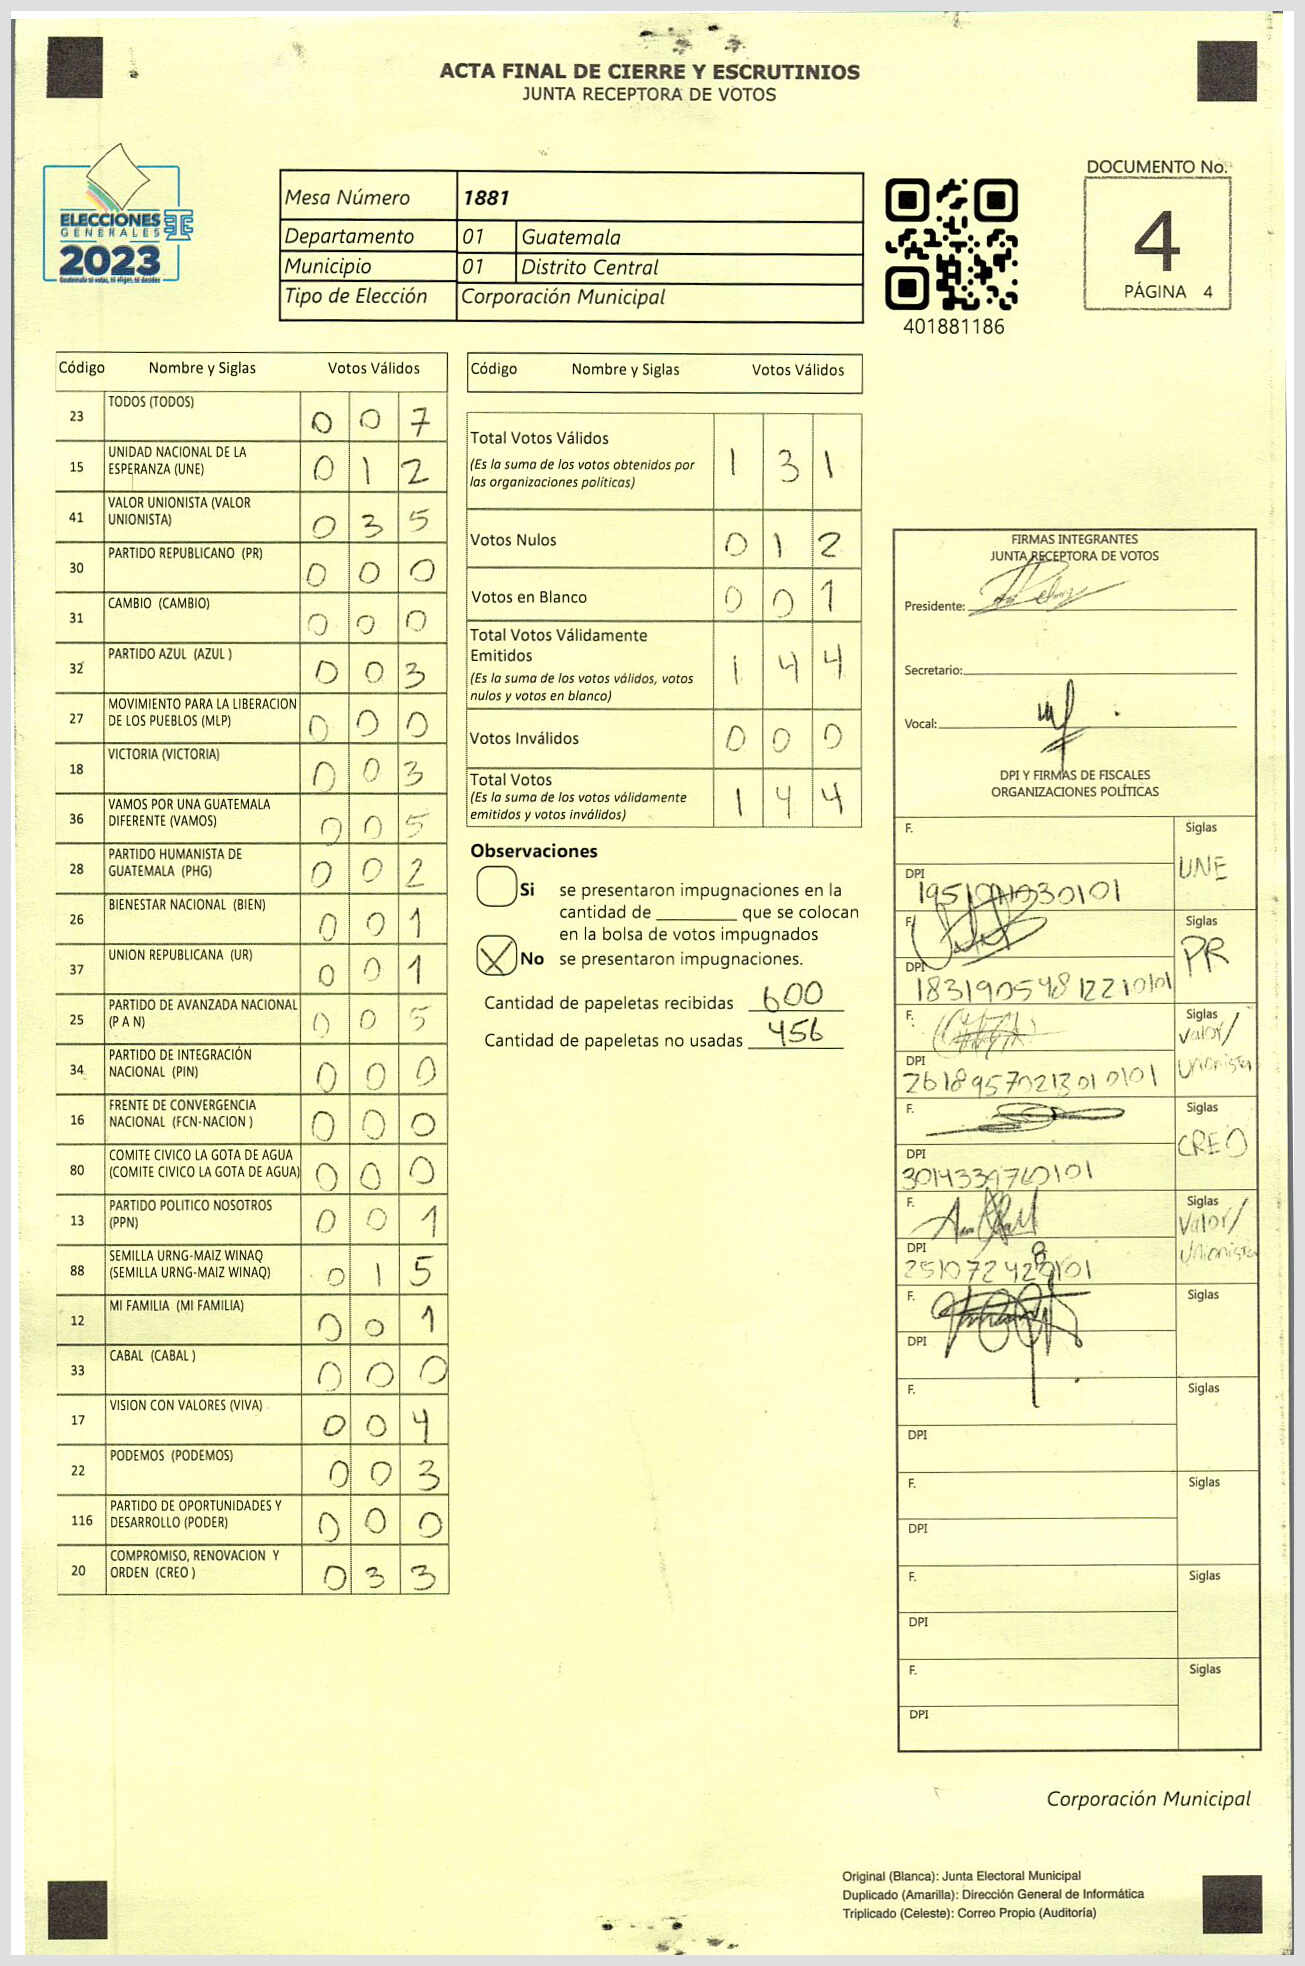 ACTA FINAL DE CIERRE Y ESCRUTINIOS
JUNTA RECEPTORA DE VOTOS
ELECCIONES
GENERALES
2023
Mesa Número 1881
Departamento 01 Guatemala
Municipio 01 Distrito Central
Tipo de Elección Corporación Municipal
401881186
DOCUMENTO No.
4
PÁGINA 4
Código Nombre y Siglas Votos Válidos
23 TODOS (TODOS) 0 0 7
15 UNIDAD NACIONAL DE LA
ESPERANZA (UNE) 0 1 2
41 VALOR UNIONISTA (VALOR
UNIONISTA) 0 3 5
30 PARTIDO REPUBLICANO (PR) 0 0 0
31 CAMBIO (CAMBIO) 0 0 0
32 PARTIDO AZUL (AZUL ) 0 0 3
27 MOVIMIENTO PARA LA LIBERACION
DE LOS PUEBLOS (MLP) 0 0 0
18 VICTORIA (VICTORIA) 0 0 3
36 VAMOS POR UNA GUATEMALA
DIFERENTE (VAMOS) 0 0 5
28 PARTIDO HUMANISTA DE
GUATEMALA (PHG) 0 0 2
26 BIENESTAR NACIONAL (BIEN) 0 0 1
37 UNION REPUBLICANA (UR) 0 0 1
25 PARTIDO DE AVANZADA NACIONAL
(P A N) 0 0 5
34 PARTIDO DE INTEGRACIÓN
NACIONAL (PIN) 0 0 0
16 FRENTE DE CONVERGENCIA
NACIONAL (FCN-NACION ) 0 0 0
80 COMITE CIVICO LA GOTA DE AGUA
(COMITE CIVICO LA GOTA DE AGUA) 0 0 0
13 PARTIDO POLITICO NOSOTROS
(PPN) 0 0 1
88 SEMILLA URNG-MAIZ WINAQ
(SEMILLA URNG-MAIZ WINAQ) 0 1 5
12 MI FAMILIA (MI FAMILIA) 0 0 1
33 CABAL (CABAL ) 0 0 0
17 VISION CON VALORES (VIVA) 0 0 4
22 PODEMOS (PODEMOS) 0 0 3
116 PARTIDO DE OPORTUNIDADES Y
DESARROLLO (PODER) 0 0 0
20 COMPROMISO, RENOVACION Y
ORDEN (CREO ) 0 3 3
Código Nombre y Siglas Votos Válidos
Total Votos Válidos 1 3 1
(Es la suma de los votos obtenidos por
las organizaciones políticas)
Votos Nulos 0 1 2
Votos en Blanco 0 0 1
Total Votos Válidamente
Emitidos 1 4 4
(Es la suma de los votos válidos, votos
nulos y votos en blanco)
Votos Inválidos 0 0 0
Total Votos 1 4 4
(Es la suma de los votos válidamente
emitidos y votos inválidos)
Observaciones
Si se presentaron impugnaciones en la
cantidad de ________ que se colocan
en la bolsa de votos impugnados
No se presentaron impugnaciones.
Cantidad de papeletas recibidas 600
Cantidad de papeletas no usadas 456
FIRMAS INTEGRANTES
JUNTA RECEPTORA DE VOTOS
Presidente:
Secretario:
Vocal:
DPI Y FIRMAS DE FISCALES
ORGANIZACIONES POLÍTICAS
F. Siglas
UNE
DPI
F. Siglas
PR
DPI
1831905481221 0101
F. Siglas
Valor/
Unionista
DPI
2618957021301 0101
F. Siglas
CREO
DPI
F. Siglas
Valor/
Unionista
DPI
F. Siglas
DPI
F. Siglas
DPI
F. Siglas
DPI
F. Siglas
DPI
F. Siglas
DPI
Corporación Municipal
Original (Blanca): Junta Electoral Municipal
Duplicado (Amarilla): Dirección General de Informática
Triplicado (Celeste): Correo Propio (Auditoría)